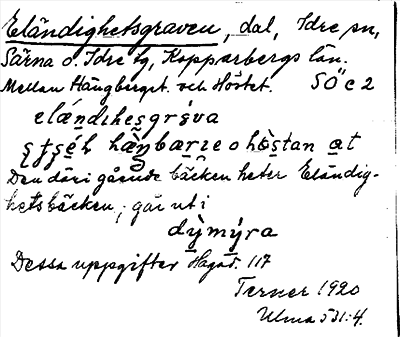 Eländighetsgraven, dal, Idre sn,
Särna o. Idre tg, Kopparbergs län.
Mellan Hängberget och Höstet. SÖ c 2
elændıhesgrɛva
hæŋbærıe o hòstan at
Den däri gående bäcken heter Eländig-
hetsbäcken; går ut i
dỳmýra
Dessa uppgifter Hagstr. 117
Terner 1920
Ulma 531:4.